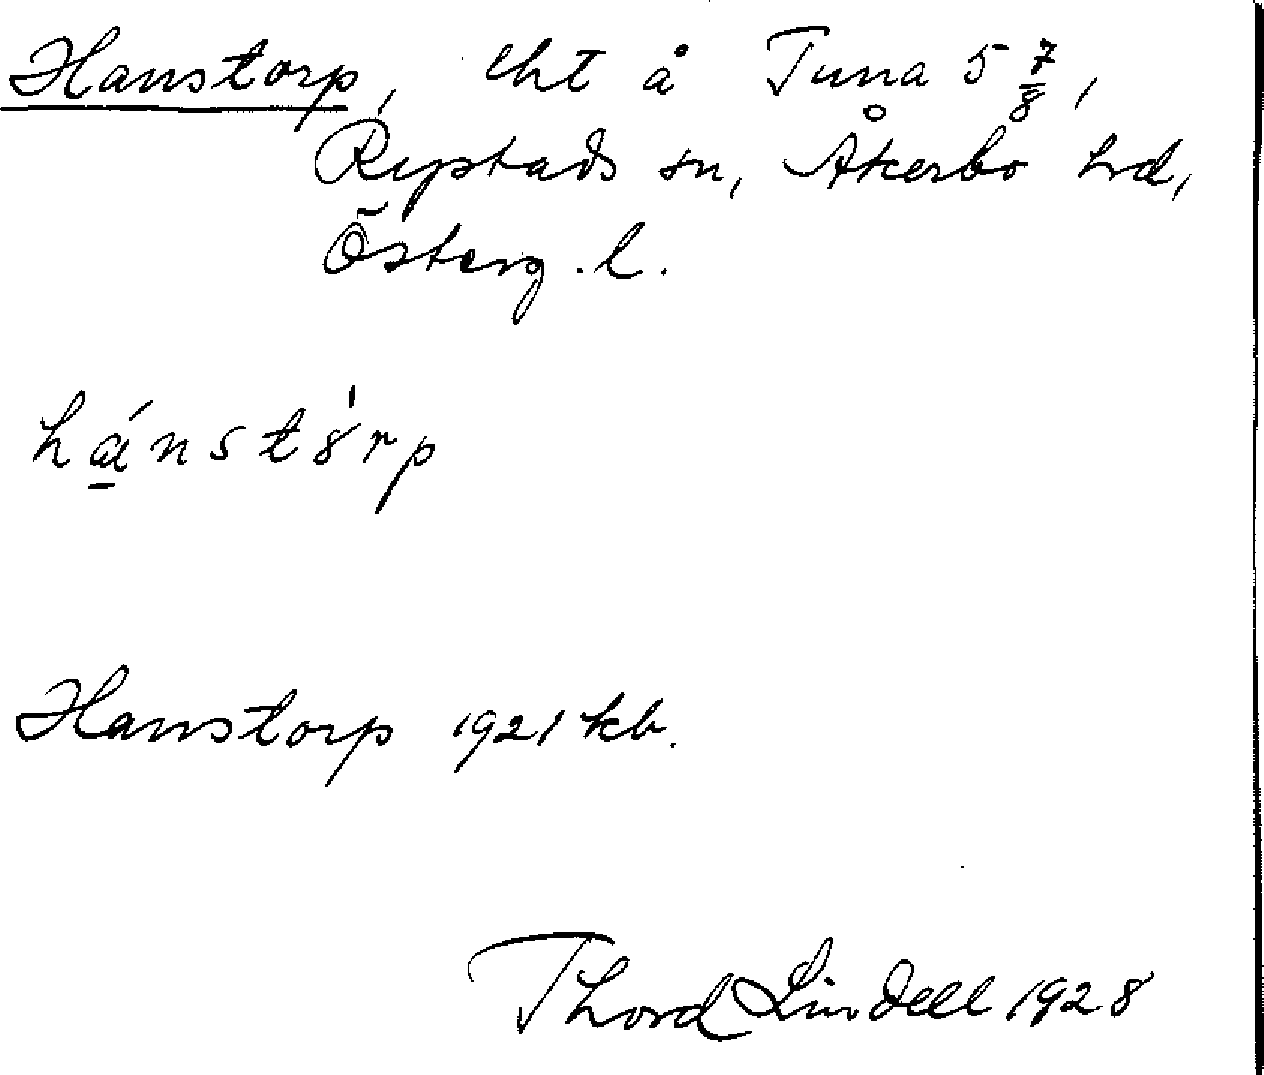 Hanstorp, lht å Tuna 5 7/8,
Rystads sn, Åkerbo hd,
Österg. l.
hánstȣ́rp
Hanstorp 1921 kb.
Thord Lindell 1928